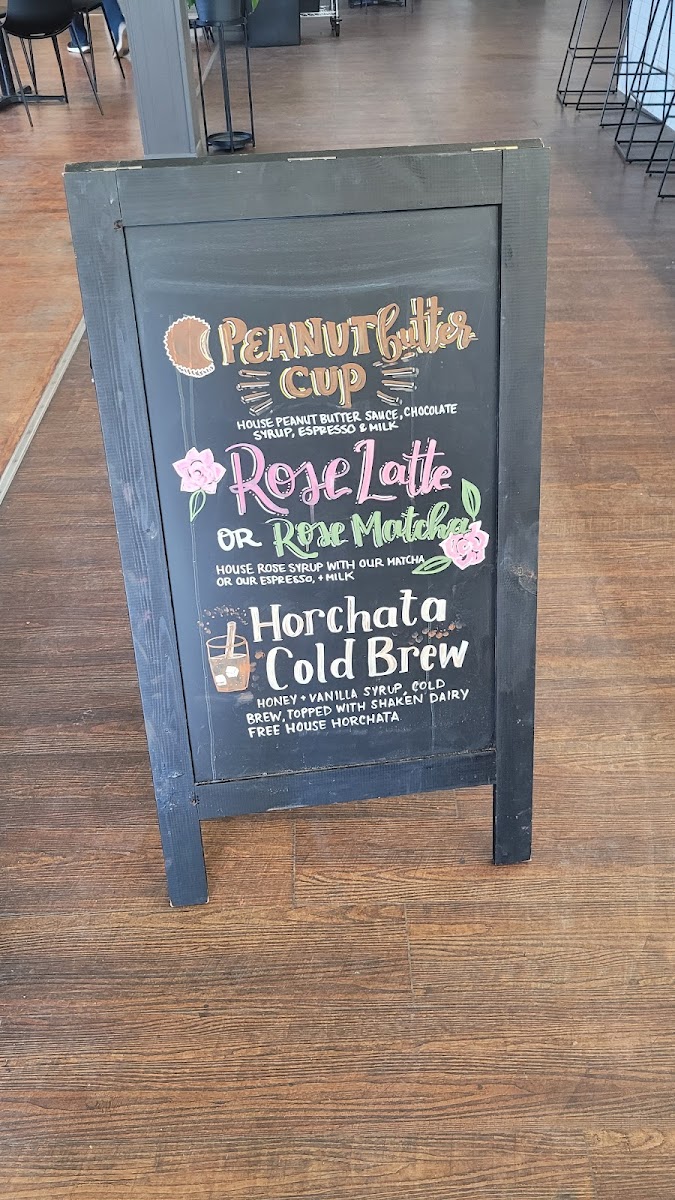 PEANUT butter
CUP
HOUSE PEANUT BUTTER SAUCE, CHOCOLATE
SYRUP, ESPRESSO & MILK
Rose Latte
OR Rose Matcha
HOUSE ROSE SYRUP WITH OUR MATCHA
OR OUR ESPRESSO, + MILK
Horchata
Cold Brew
HONEY + VANILLA SYRUP, COLD
BREW, TOPPED WITH SHAKEN DAIRY
FREE HOUSE HORCHATA